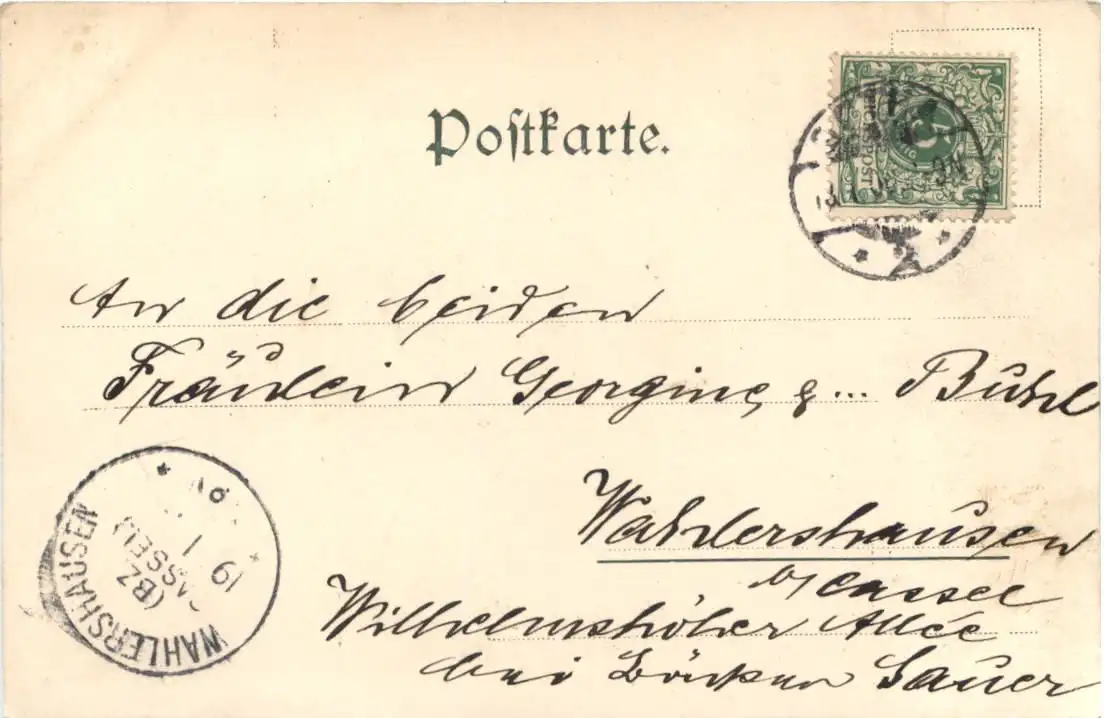 Postkarte.
REICHSPOST
An die beiden
Fräulein Georgine, & ... Buhl
Wahlershausen
b/ Cassel
Wilhelmshöher Allée
bei Bäcker Sauer
WAHLERSHAUSEN
(BZ CASSEL)
19 1